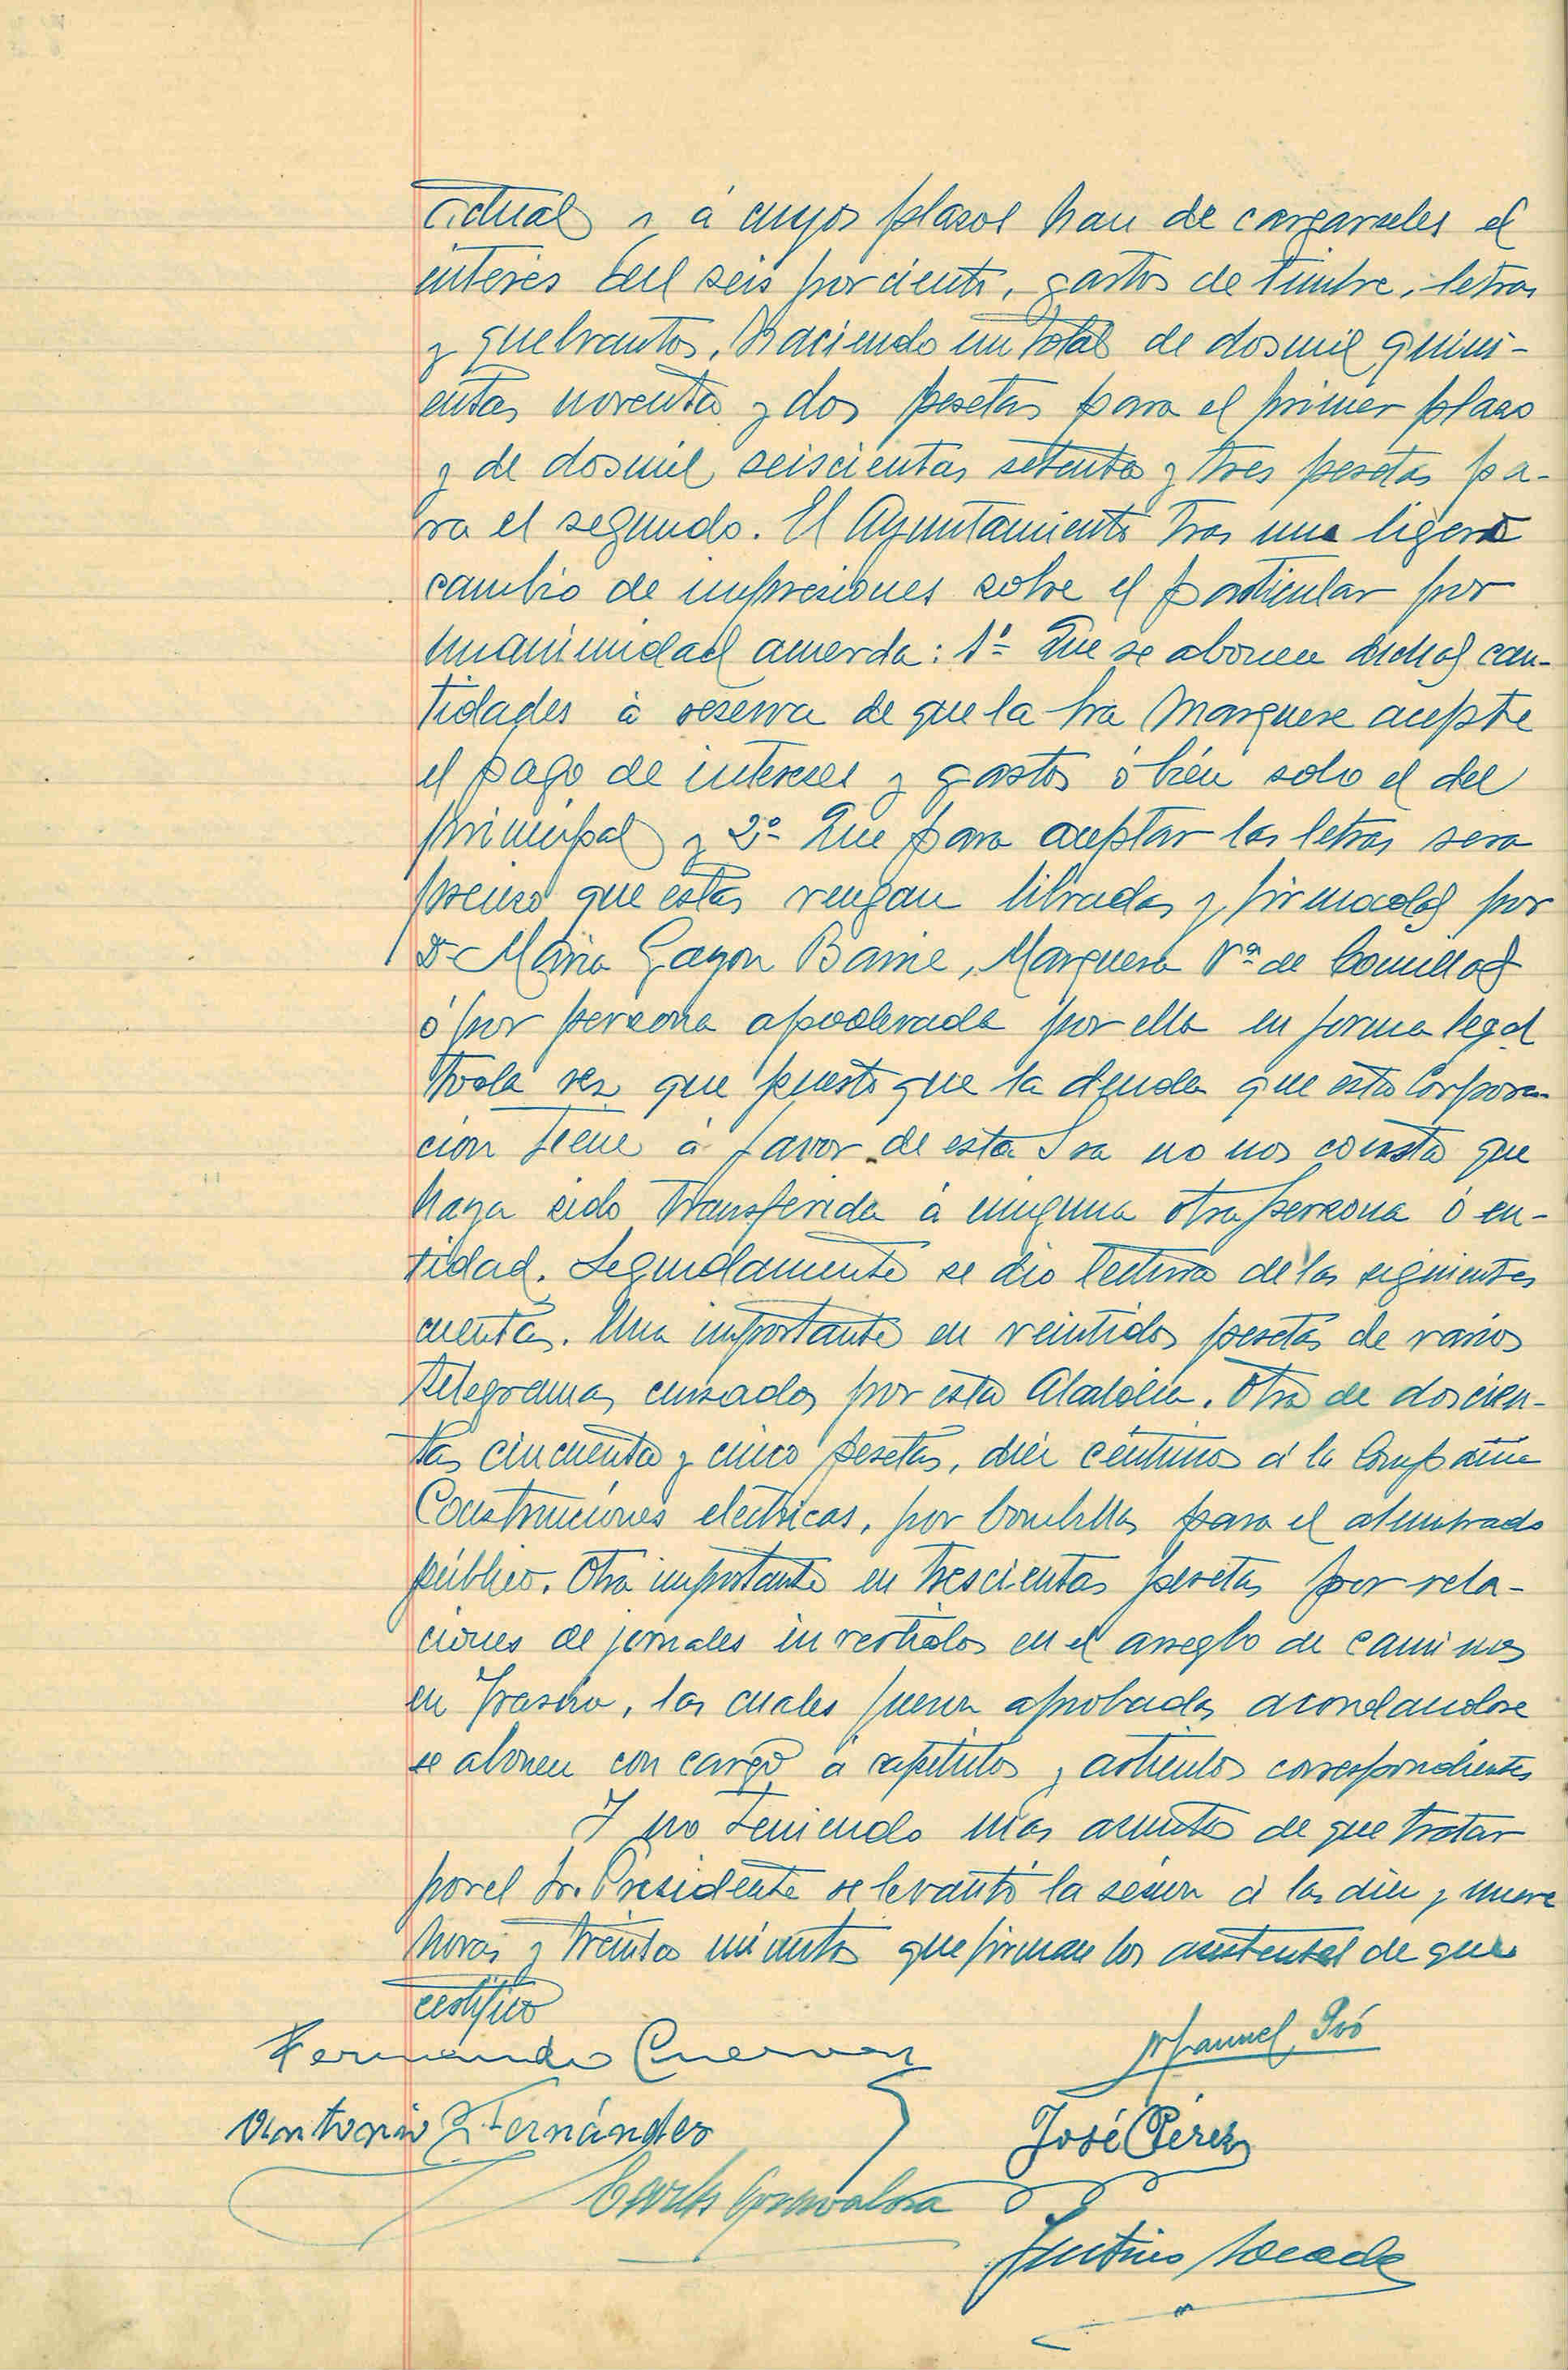 actual y á cuyos plazos han de cargarseles el
interés del seis por ciento, gastos de timbre, letras
y quebrantos, haciendo un total de dosmil quini-
entas noventa y dos pesetas para el primer plazo
y de dosmil seiscientas setenta y tres pesetas pa-
ra el segundo. El Ayuntamiento tras una ligero
cambio de impresiones sobre el particular por
unanimidad acuerda: 1º Que se abonen dichas can-
tidades á reserva de que la Sra Marquesa acepte
el pago de intereses y gastos ó bién solo el del
principal y 2º Que para aceptar las letras sera
preciso que estas vengan libradas y firmadas por
Dª Maria Gayon Barrie, Marquesa Vª de Comillas
ó por persona apoderada por ella en forma legal
toda vez que puesto que la deuda que esta Corpora-
ción tiene á favor de esta Sra no nos consta que
haya sido transferida á ninguna otra persona ó en-
tidad. Seguidamente se dio lectura de las siguientes
cuentas. Una importante en veintidos pesetas de varios
telegramas cursados por esta Alcaldia. Otra de doscien-
tas cincuenta y cinco pesetas, diéz céntimos á la Compañia
Construciónes eléctricas, por bombillas para el alumbrado
público. Otra importante en trescientas pesetas por rela-
ciones de jornales invertidos en el arreglo de caminos
en, las cuales fueron aprobadas acordandose
se abonen con cargo á capitulos y articulos correspondientes
Y no teniendo mas asuntos de que tratar
por el Sr. Presidente se levantó la sesion á las diez y nueve
horas y treinta minutos que firman los asistentes de que
certifico
Fernando Cuervas
Manuel Pró
Antonio Fernández
José Pérez
Carlos
Justino